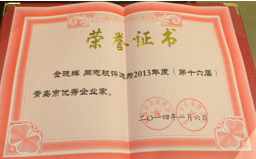 荣誉证书
金晓辉 同志被评选为2013年度（第十六届）
青岛市优秀企业家。
二〇一四年一月六日